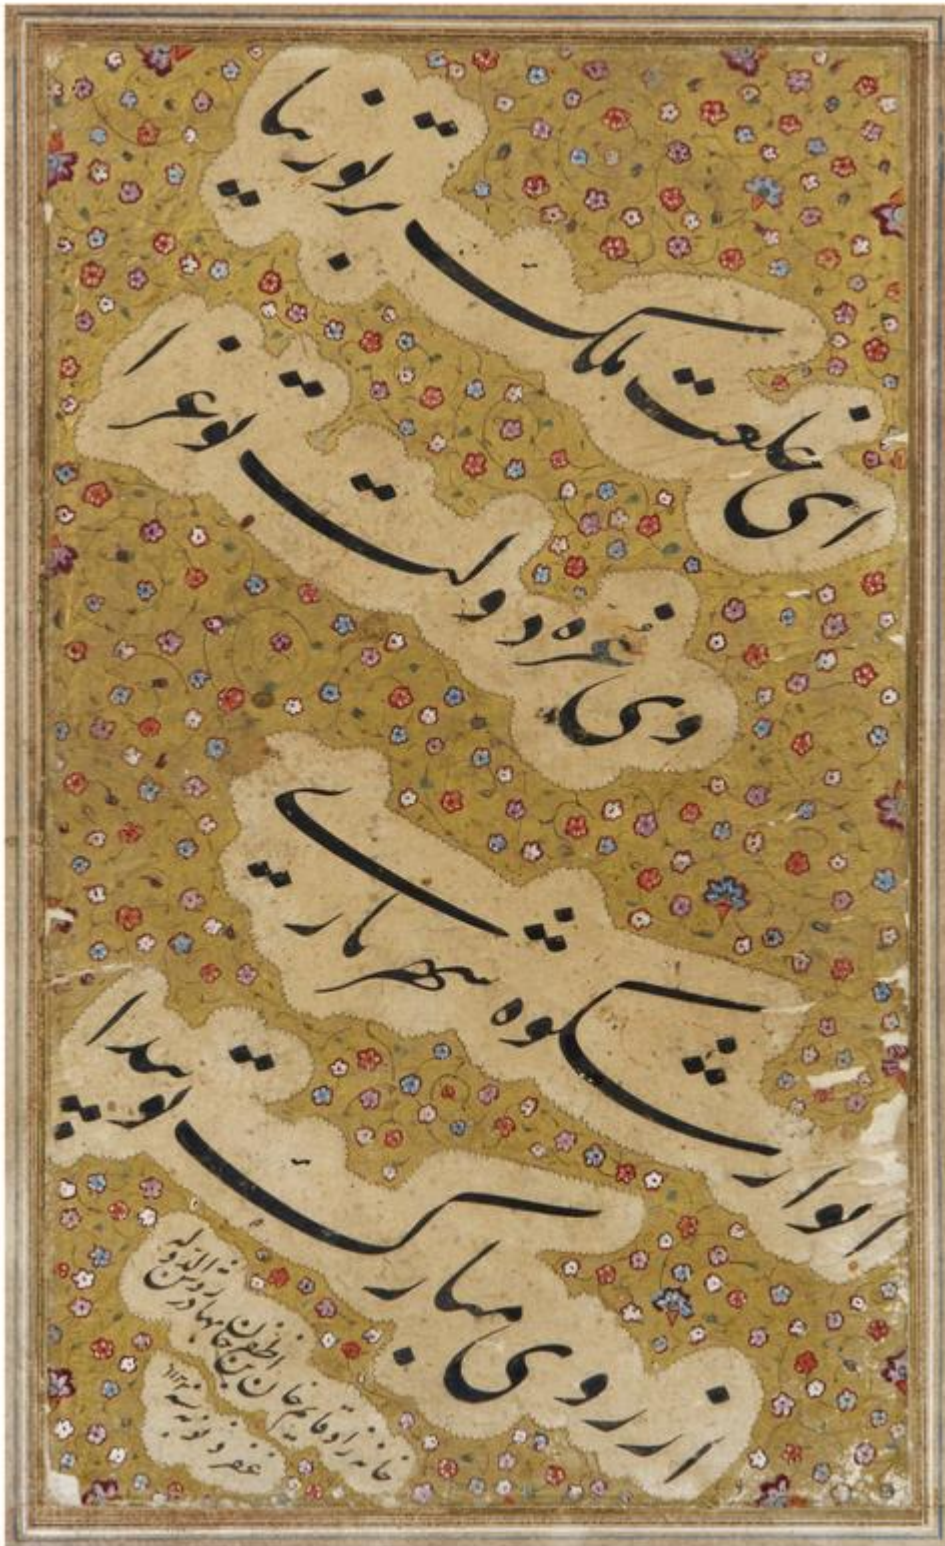 ای خلعت ملک بر تو زیبا
وی غره دولت تو غرا
انوار شکوه شهریاریت
از روی مبارک تو پیدا
خانه زاد قایم خان بن ظفر خان بهادر روشن الدوله
غفر ذنوبه سنه